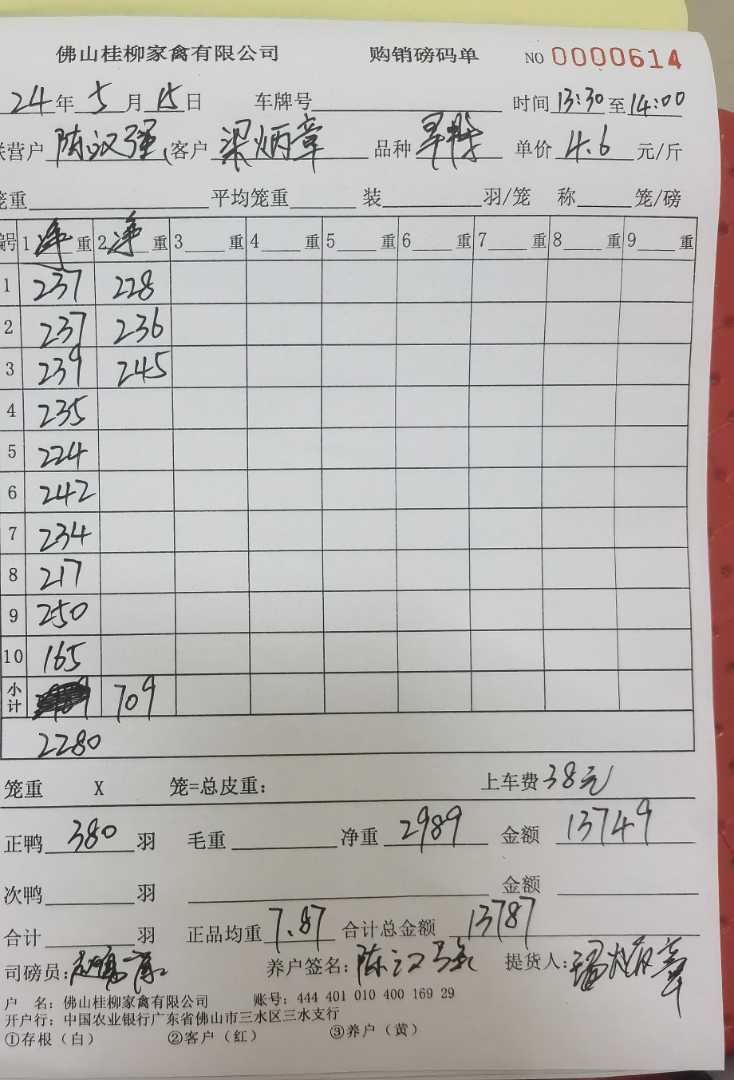 佛山桂柳家禽有限公司 购销磅码单 NO 0000614
24年 5月 15日 车牌号 时间 13:30 至 14:00
联营户 陈汉强 客户 梁炳章 品种 单价 4.6 元/斤
笼重 平均笼重 装 羽/笼 称 笼/磅
编号 1 净 重 2 净 重 3 重 4 重 5 重 6 重 7 重 8 重 9 重
1 237 228
2 237 236
3 239 245
4 235
5 224
6 242
7 234
8 217
9 250
10 165
小计 709
2280
笼重 X 笼=总皮重: 上车费 38元
正鸭 380 羽 毛重 净重 2989 金额 13749
次鸭 羽 金额
合计 羽 正品均重 7.87 合计总金额 13787
司磅员: 养户签名: 陈汉强 提货人: 炳章
户 名: 佛山桂柳家禽有限公司 账号: 444 401 010 400 169 29
开户行: 中国农业银行广东省佛山市三水区三水支行
①存根（白） ②客户（红） ③养户（黄）